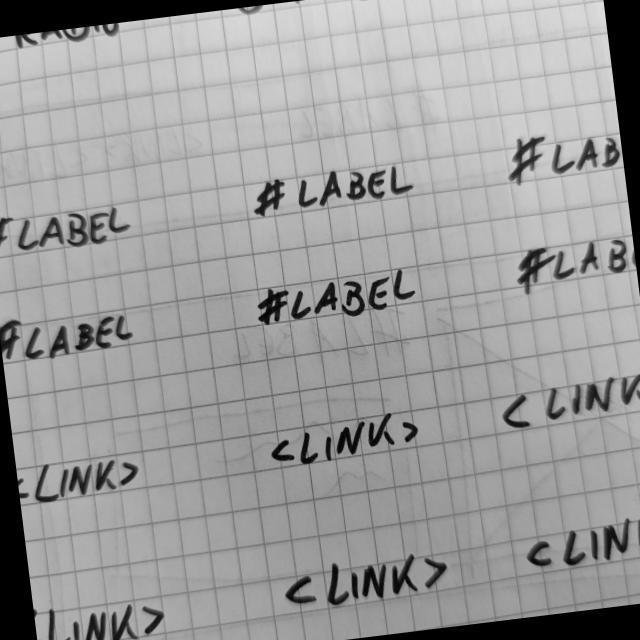 #LABEL #LABEL #LAB
#LABEL #LABEL #LAB
<LINK> <LINK> <LINK
LINK> <LINK> <LIN